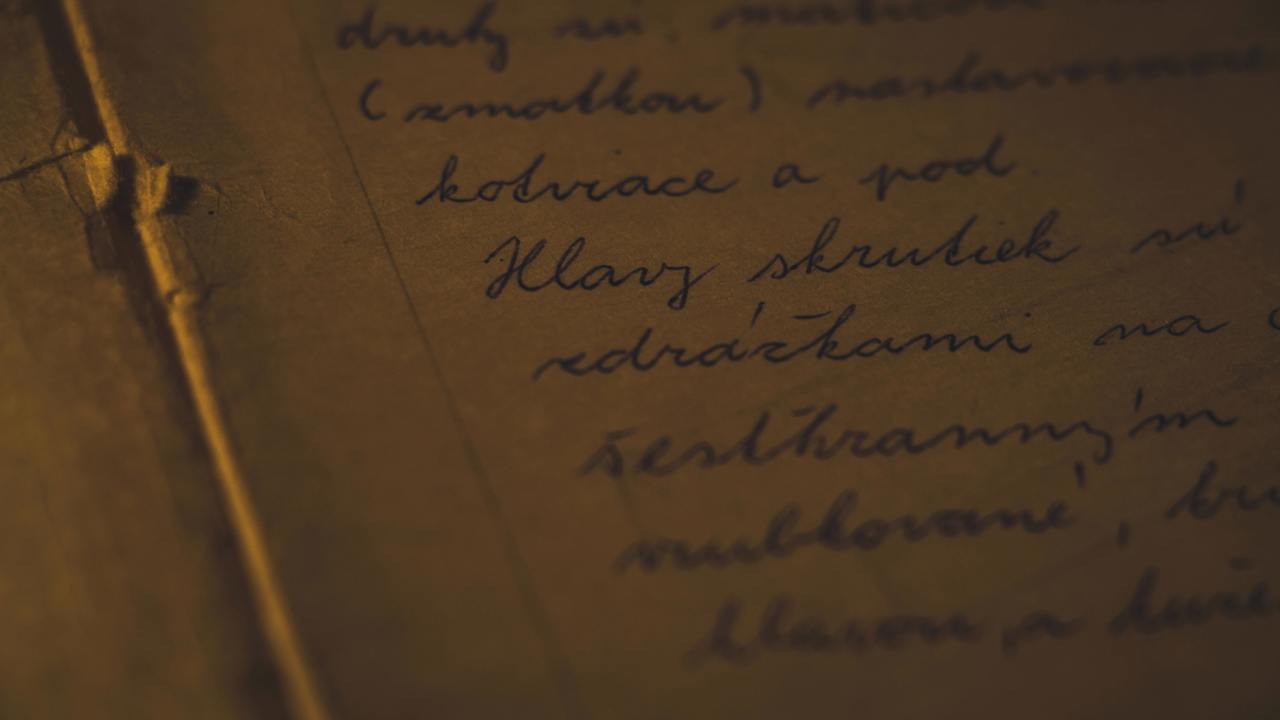 druhy sú
(zmatkou) nastavovacie
kotviace a pod.
Hlavy skrutiek sú
zdrážkami na
šesťhranným
vrubkované,
hlavou, a